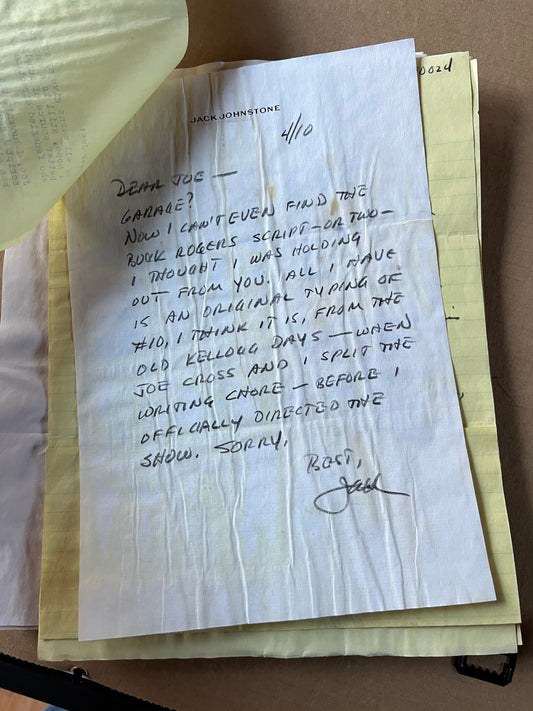 JACK JOHNSTONE
4/10
DEAR JOE —
GARAGE?
NOW I CAN'T EVEN FIND THE
BUCK ROGERS SCRIPT—OR TWO—
I THOUGHT I WAS HOLDING
OUT FROM YOU. ALL I HAVE
IS AN ORIGINAL TYPING OF
#10, I THINK IT IS, FROM THE
OLD KELLOGG DAYS — WHEN
JOE CROSS AND I SPLIT THE
WRITING CHORE — BEFORE I
OFFICIALLY DIRECTED THE
SHOW. SORRY.
BEST,
Jack